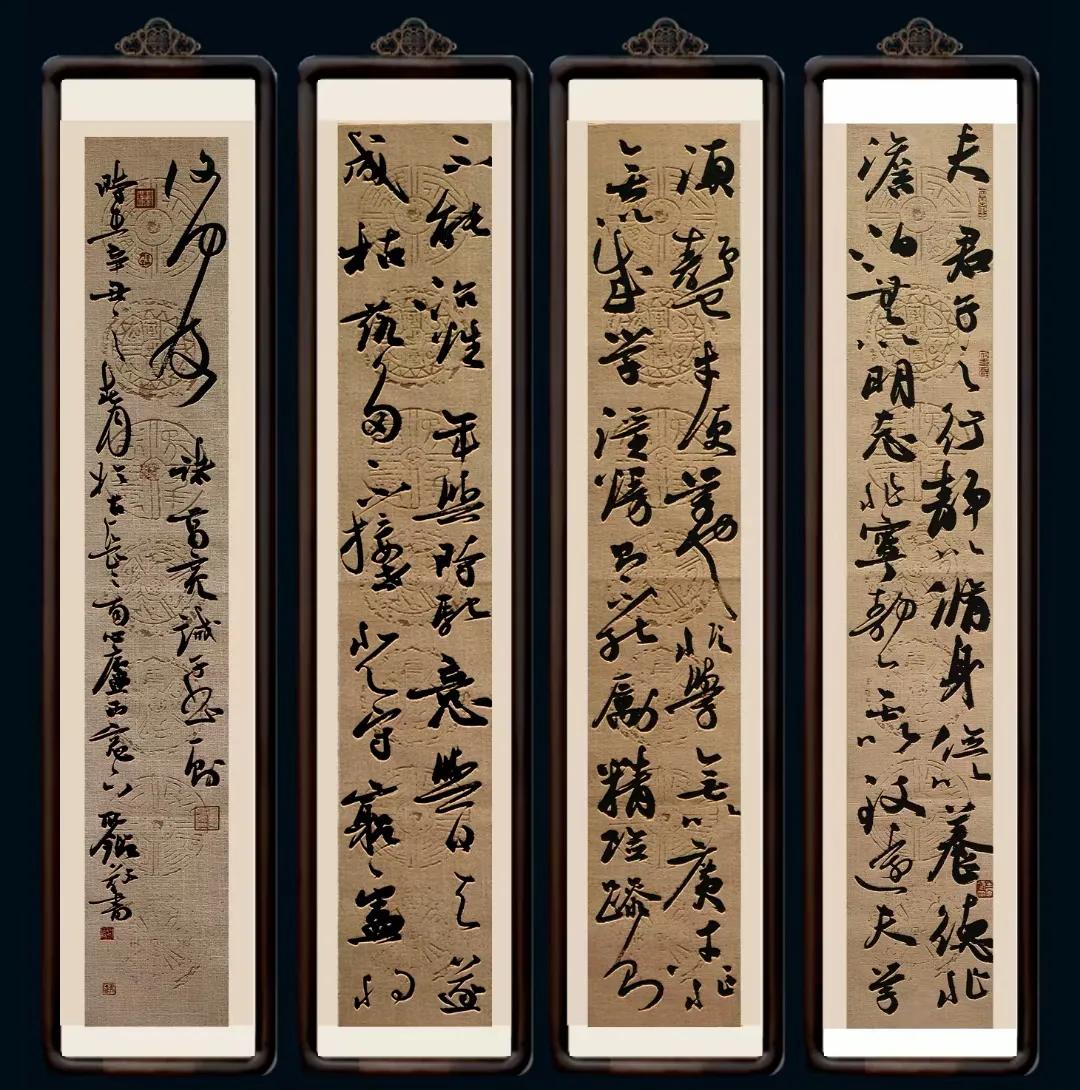 夫君子之行静以脩身俭以養德非
澹泊無以明志非寧静無以致遠夫学
須静也才須学也非學無以廣才非志
無以成学淫慢則不能勵精险躁則
不能治性年與時馳意與日去遂
成枯落多不接世悲守窮廬將
復何及 诸葛亮诫子書一則
時在辛丑之春月於古長安 敬書